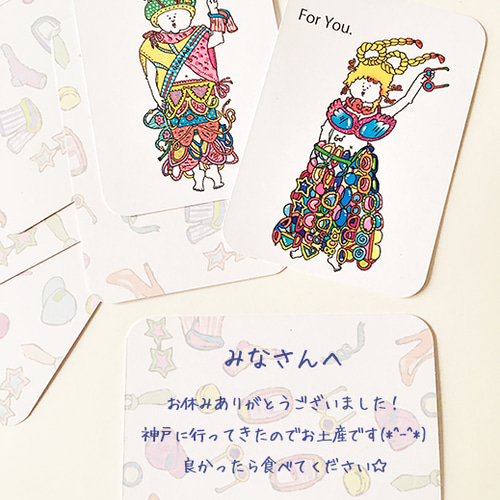 For You.
みなさんへ
お休みありがとうございました!
神戸に行ってきたのでお土産です(*^-^*)
良かったら食べてください☆